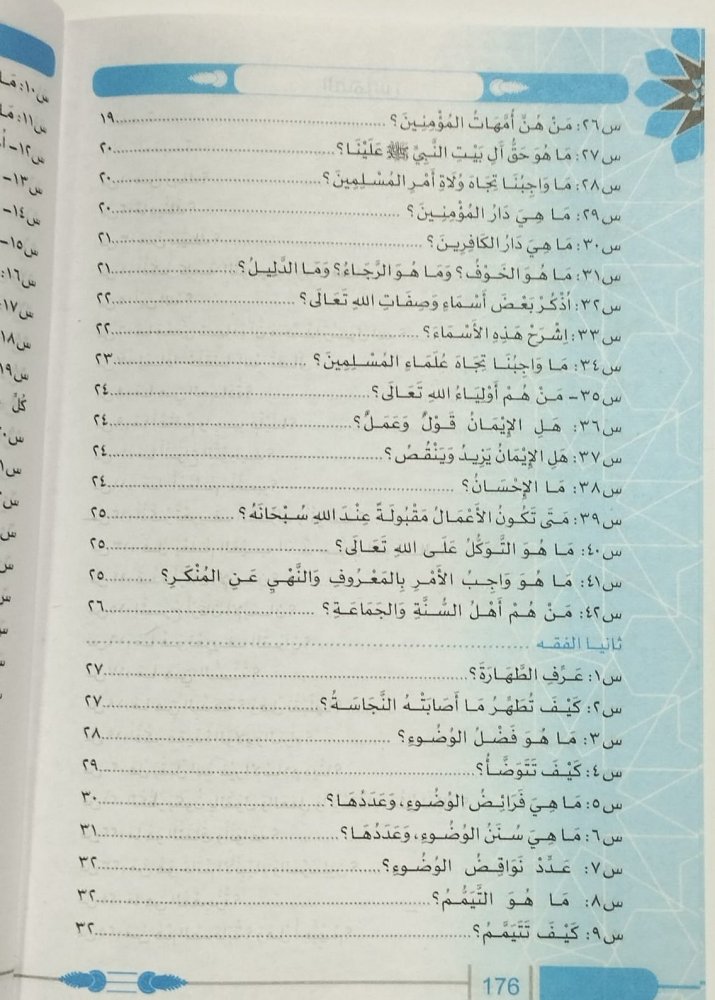 س٢٦: مَنْ هُنَّ أُمَّهَاتُ المُؤْمِنِينَ؟ ١٩
س٢٧: مَا هُوَ حَقُّ آلِ بَيْتِ النَّبِيِّ ﷺ عَلَيْنَا؟ ٢٠
س٢٨: مَا وَاجِبُنَا تِجَاهَ وُلَاةِ أَمْرِ المُسْلِمِينَ؟ ٢٠
س٢٩: مَا هِيَ دَارُ المُؤْمِنِينَ؟ ٢٠
س٣٠: مَا هِيَ دَارُ الكَافِرِينَ؟ ٢١
س٣١: مَا هُوَ الخَوْفُ؟ وَمَا هُوَ الرَّجَاءُ؟ وَمَا الدَّلِيلُ؟ ٢١
س٣٢: اُذْكُرْ بَعْضَ أَسْمَاءِ وَصِفَاتِ اللهِ تَعَالَى؟ ٢٢
س٣٣: اِشْرَحْ هَذِهِ الأَسْمَاءَ؟ ٢٢
س٣٤: مَا وَاجِبُنَا تِجَاهَ عُلَمَاءِ المُسْلِمِينَ؟ ٢٣
س٣٥- مَنْ هُمْ أَوْلِيَاءُ اللهِ تَعَالَى؟ ٢٤
س٣٦: هَلِ الإِيْمَانُ قَوْلٌ وَعَمَلٌ؟ ٢٤
س٣٧: هَلِ الإِيْمَانُ يَزِيدُ وَيَنْقُصُ؟ ٢٤
س٣٨: مَا الإِحْسَانُ؟ ٢٤
س٣٩: مَتَى تَكُونُ الأَعْمَالُ مَقْبُولَةً عِنْدَ اللهِ سُبْحَانَهُ؟ ٢٥
س٤٠: مَا هُوَ التَّوَكُّلُ عَلَى اللهِ تَعَالَى؟ ٢٥
س٤١: مَا هُوَ وَاجِبُ الأَمْرِ بِالمَعْرُوفِ وَالنَّهْيِ عَنِ المُنْكَرِ؟ ٢٥
س٤٢: مَنْ هُمْ أَهْلُ السُّنَّةِ وَالجَمَاعَةِ؟ ٢٦
ثانيا الفقه
س١: عَرِّفِ الطَّهَارَةَ؟ ٢٧
س٢: كَيْفَ تُطَهِّرُ مَا أَصَابَتْهُ النَّجَاسَةُ؟ ٢٧
س٣: مَا هُوَ فَضْلُ الوُضُوءِ؟ ٢٨
س٤: كَيْفَ تَتَوَضَّأُ؟ ٢٩
س٥: مَا هِيَ فَرَائِضُ الوُضُوءِ، وَعَدَدُهَا؟ ٣٠
س٦: مَا هِيَ سُنَنُ الوُضُوءِ، وَعَدَدُهَا؟ ٣١
س٧: عَدِّدْ نَوَاقِضُ الوُضُوءِ؟ ٣٢
س٨: مَا هُوَ التَّيَمُّمُ؟ ٣٢
س٩: كَيْفَ تَتَيَمَّمُ؟ ٣٢
176
س١٠: مَا
س١١: مَا
س١٢-
س١٣-
س١٤-
س١٥-
س١٦:
س١٧:
س١٨
س١٩
كُلِّ